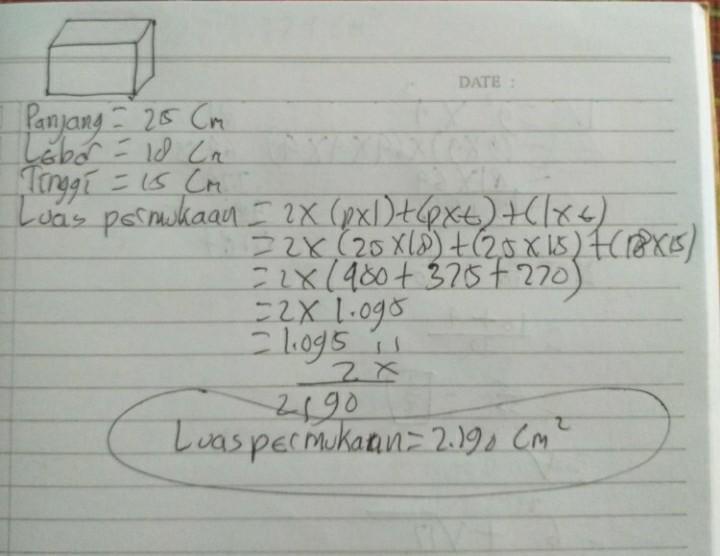 DATE :
Panjang = 25 Cm
Lebar = 18 Cm
Tinggi = 15 Cm
Luas permukaan = 2x (pxl)+(pxt)+(lxt)
= 2x (25x18)+(25x15)+(18x15)
= 2x (450+375+270)
= 2x 1.095
= 1.095
2 x
2190
Luas permukaan = 2.190 Cm²